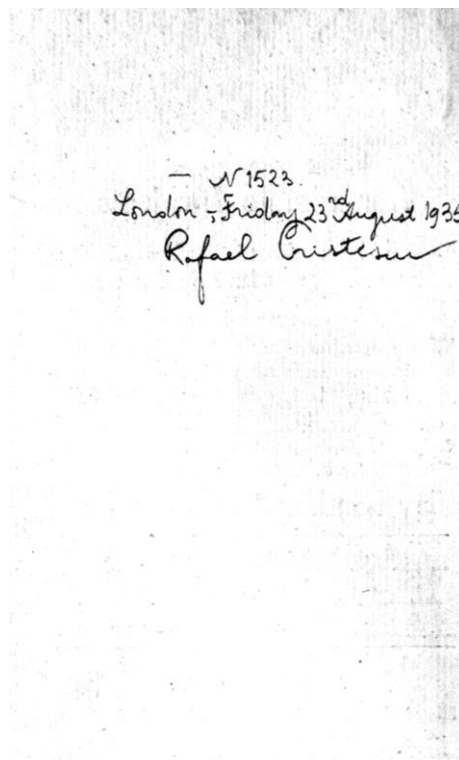 — N 1523.
London - Friday 23rd August 1935
Rafael Cristescu